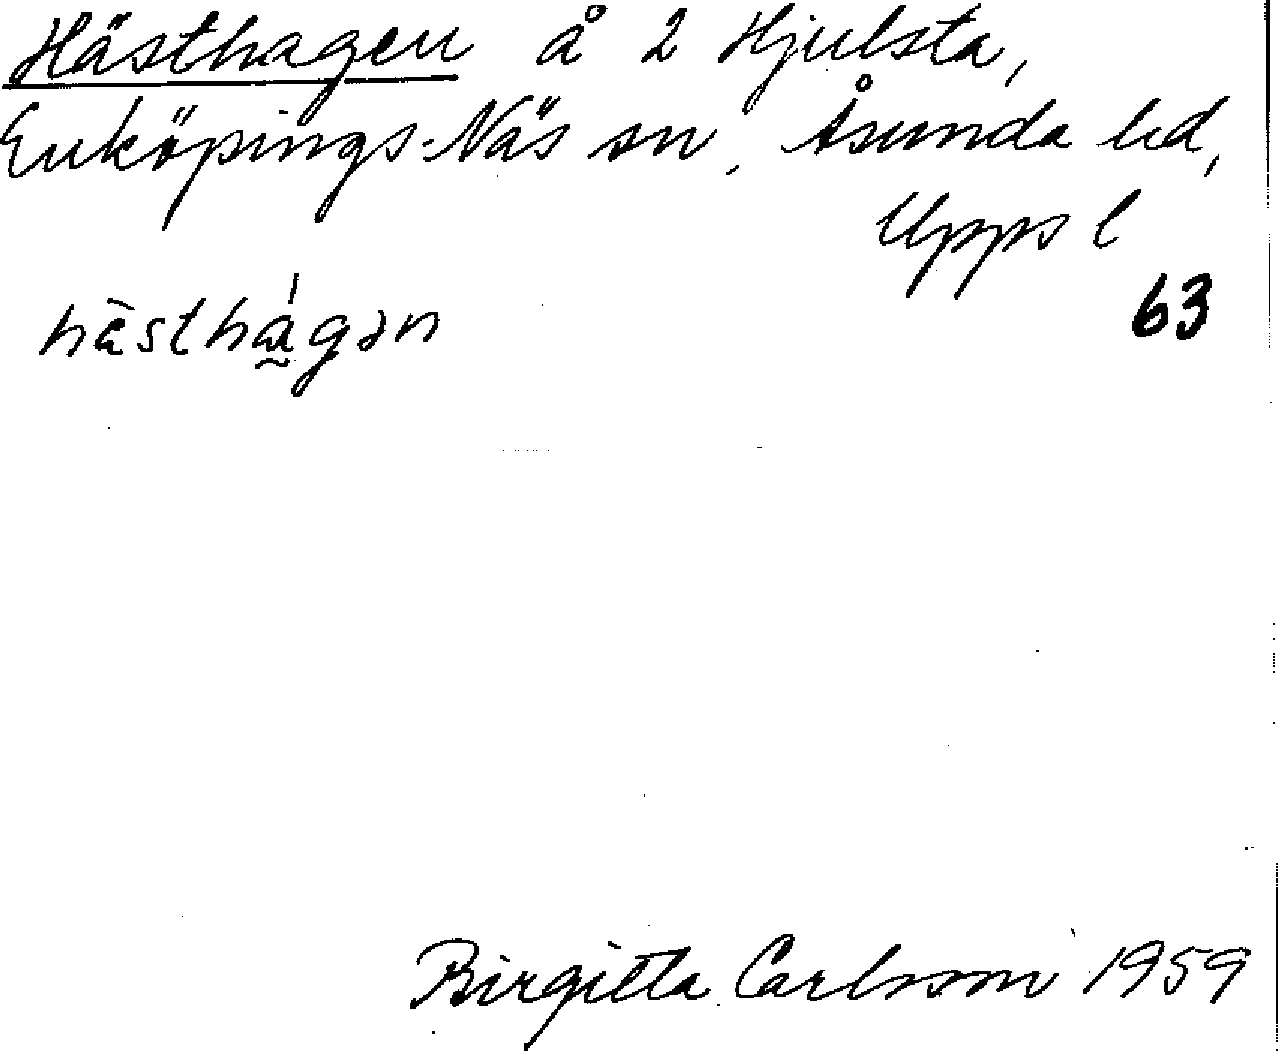 Hästhagen å 2 Hjulsta,
Enköpings-Näs sn, Åsunda hd,
Upps l
hàsthá̰gən
63
Birgitta Carlsson 1959